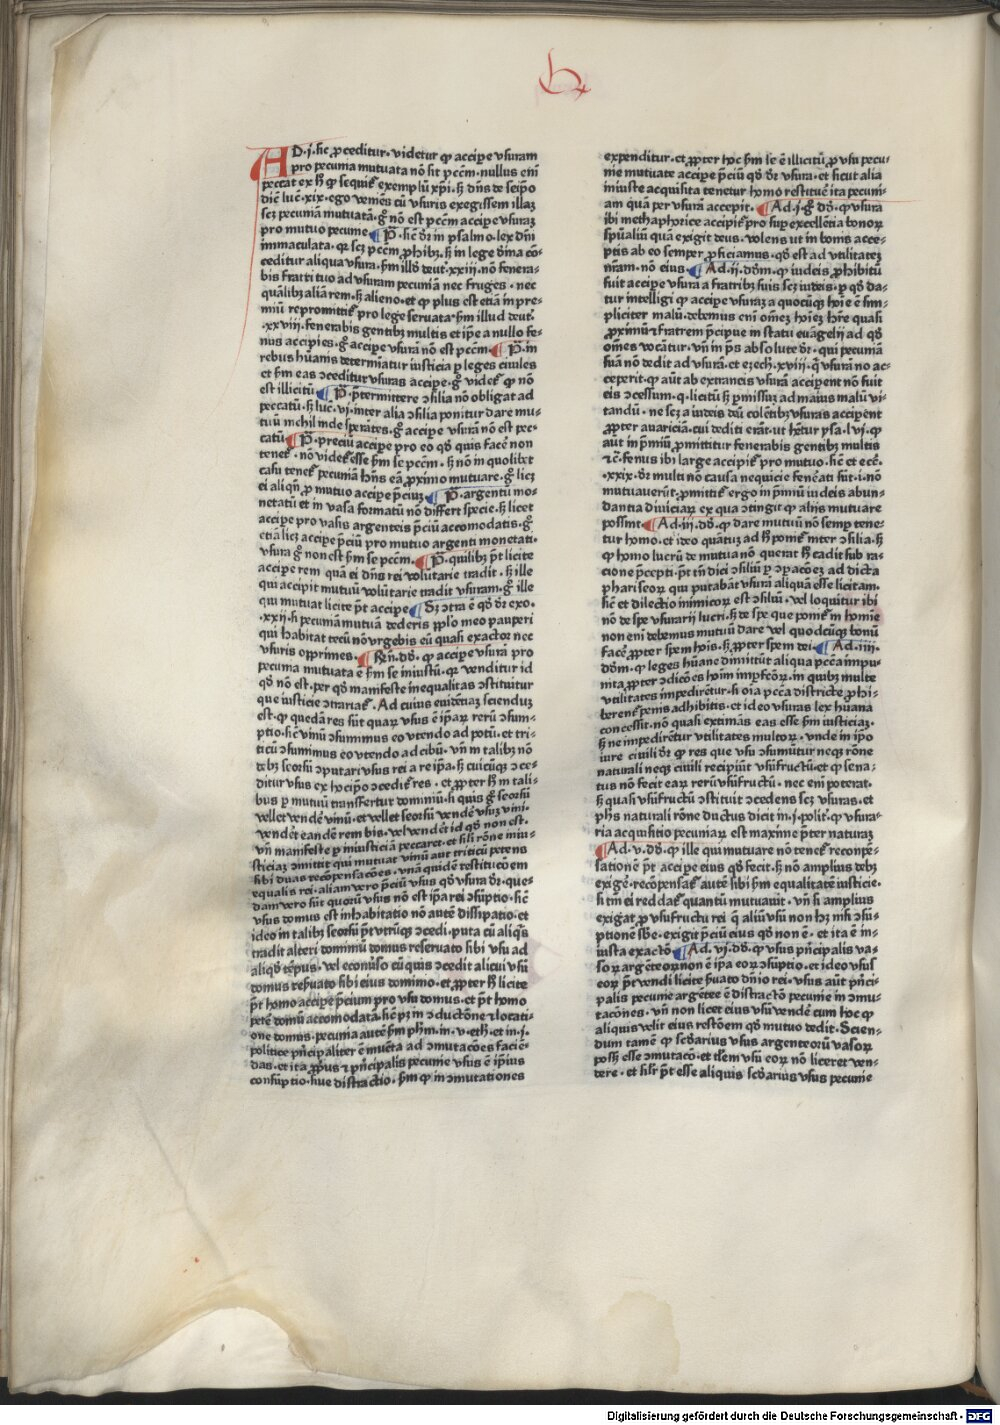 AD .j. sic ꝓceditur. videtur qꝫ accipe vsuram
pro pecunia mutuata nō sit pctm̄. nullus eni
peccat ex h̄ qꝫ sequit᷑ exemplū xp̄i. h̄ dn̄s de seipo
dic̄ luc̄. xix. ego veniēs cū vsuris exegissem illaꝫ
scꝫ pecuniā mutuatā. gͦ nō est pctm̄ accipe vsuraꝫ
pro mutuo pecunie ¶ P̄. sic̄ dr̄ in psalmo. lex dn̄i
immaculata. qꝛ scꝫ pctm̄ ꝓhibꝫ. h̄ in lege diīna cō-
ceditur aliqua vsura. ẜm illd̄ deut̄. xxiii. nō fenera-
bis fratri tuo ad vsuram pecuniam nec fruges. nec
qualibꝫ aliā rem. h̄ alieno. et qꝫ plus est etiā in pre-
miū repromittit᷑ pro lege seruata ẜm illud deut̄.
.xxviij. fenerabis gentibꝫ multis et ip̄e a nullo fe-
nus accipies. gͦ accipe vsurā nō est pctm̄. ¶ P̄. in
rebus hūanis determīatur iusticia ꝑ leges ciuiles
et ẜm eas ↄceditur vsuras accipe. gͦ videt᷑ qꝫ nō
est illicitū ¶ P̄. p̄termittere ↄsilia nō obligat ad
peccatū. h̄ luc̄. vj. inter alia ↄsilia ponitur dare mu-
tuū nichil inde sperātes. gͦ accipe vsurā nō est pec-
catū ¶ P̄. preciū accipe pro eo qd̄ quis facē non
tenet᷑. nō videt᷑ esse ẜm se pctm̄. h̄ nō in quolibet
casu tenet᷑ pecuniā hn̄s eā ꝓximo mutuare. gͦ licꝫ
ei aliqn̄ ꝓ mutuo accipe p̄ciuꝫ ¶ P̄. argentū mo-
netatū et in vasa formatū nō differt specie. h̄ licet
accipe pro vasis argenteis p̄ciū accomodatis. gͦ
etiā licꝫ accipe p̄ciū pro mutuo argenti monetati.
vsura gͦ non est ẜm se pctm̄. ¶ P̄. quilibꝫ pt̄ licite
accipe rem quā ei dn̄s rei volūtarie tradit. h̄ ille
qui accipit mutuū volūtarie tradit vsuram. gͦ ille
qui mutuat licite pt̄ accipe ¶ Sꝫ ↄtra ē qd̄ dr̄ exo.
.xxii. h̄ pecuniā mutuā dederis pplo meo pauperi
qui habitat tecū nō vrgebis eū quasi exactor nec
vsuris opprimes. ¶ Rn̄. dd̄. qꝫ accipe vsurā pro
pecunia mutuata ē ẜm se iniustū. qꝛ venditur id
qd̄ nō est. per qd̄ manifeste inequalitas ↄstituitur
que iusticie ↄtrariat᷑. Ad cuius euidētiaꝫ sciendū
est. qꝫ quedā res sūt quaꝝ vsus ē ip̄aꝝ rerū ↄsum-
ptio. sic̄ vinū ↄsumimus eo vtendo ad potū. et tri-
ticū ↄsumimus eo vtendo ad cibū. vn̄ in talibꝫ nō
debꝫ seorsū ↄputari vsus rei a re ip̄a. h̄ cuicūqꝫ ↄce-
ditur vsus ex hͦ ip̄o ↄcedit᷑ res. et ꝓpter hͦ in tali-
bus ꝑ mutuū transfertur dominiū. si quis gͦ seorsū
vellet vendē vinū. et vellet seorsū vendē vsuꝫ vini.
venderet eandē rem bis. vel vendēt id qd̄ non est.
vn̄ manifeste ꝑ iniusticiā peccaret. et sil̄i rōne iniu-
sticiaꝫ ↄmittit qui mutuat vinū aut triticū petens
sibi duas recōpensacōes. vnā quidem restitucōem
equalis rei. aliam vero p̄ciū vsus qd̄ vsura dr̄. que-
dam vero sūt quorū vsus nō est ip̄a rei ↄsūptio. sic̄
vsus domus est inhabitatio nō autē dissipatio. et
ideo in talibꝫ seorsū pt̄ vtrūqꝫ ↄcedi. puta cū aliqͥs
tradit alteri dominiū domus reservato sibi vsu ad
aliqd̄ tēpus. vel ecōuerso cū quis ↄcedit alicui vsū
domus reservato sibi eius dominio. et ꝓpter hͦ licite
pt̄ homo accipe p̄cium pro vsu domus. et pt̄ homo
petē domū accomodatā. sic̄ pꝫ in ↄductōne et locati-
one domus. pecunia autē ẜm phm̄ in. v. eth̄. et in. j.
politice pn̄cipaliter ē inuēta ad ↄmutacōes faciē-
das. et ita ꝓpus et pn̄cipalis pecunie vsus ē ip̄ius
consūptio. siue distractio. ẜm qꝫ in ↄmutationes
expenditur. et ꝓpter hoc ẜm se ē illicitū ꝓ vsu pecu-
nie mutuate accipe p̄ciū qd̄ dr̄ vsura. et sicut alia
iniuste acquisita tenetur homo restituē ita pecuni-
am quā per vsurā accepit. ¶ Ad .j. gͦ dd̄. qꝫ vsura
ibi methaphorice accipit᷑ pro sup excellētia bonoꝝ
spūaliū quā exigit deus. volens vt in bonis acce-
ptis ab eo semper ꝓficiamus. qd̄ est ad vtilitatē
nr̄am. nō eius ¶ Ad .ii. ddm̄. qꝫ iudeis ꝓhibitū
fuit accipe vsurā a fratribꝫ suis scꝫ iudeis. ꝑ qd̄ da-
tur intelligi qꝫ accipe vsuraꝫ a quocūqꝫ hoīe ē sim-
pliciter malū. debemus eni omēꝫ hoīeꝫ hr̄e quasi
ꝓximū et fratrem p̄cipue in statu euāgelij ad qd̄
om̄es vocātur. vn̄ in ps̄ absolute dr̄. qui pecuniā
suā nō dedit ad vsurā. et ezech̄. xviij. qͥ vsurā nō ac-
ceperit. qꝫ aūt ab extraneis vsurā accipent nō fuit
eis ↄcessum. qͣ licitū h̄ ꝑmissuꝫ ad maius malū vi-
tandū. ne scꝫ a iudeis deū colētibꝫ vsuras accipent
ꝓpter auariciā. cui dediti erāt. vt hr̄tur ysa. lvi. qꝫ
aūt in p̄miū ꝓmittitur fenerabis gentibꝫ multis
etc̄. fenus ibi large accipit᷑ pro mutuo. sic̄ et ecc̄.
.xxix. dr̄ multi nō causa nequicie fenēati sūt. i. nō
mutuauerūt. ꝓmittit᷑ ergo in p̄miū iudeis abun-
dantia diuiciaꝝ ex qua ↄtingit qꝫ alijs mutuare
possint ¶ Ad .iii. dd̄. qꝫ dare mutuū nō semp tene-
tur homo. et ideo quātuꝫ ad hͦ ponit᷑ inter ↄsilia. h̄
qꝫ homo lucrū de mutuo nō querat hͦ cadit sub ra-
cione p̄cepti. pt̄ tn̄ dici ↄsiliū ꝑ ↄparacōeꝫ ad dicta
phariseoꝝ qui putabāt vsurā aliquā esse licitam.
sic̄ et dilectio inimicoꝝ est ↄsiliū. vel loquitur ibi
nō de spe vsurarij lucri. h̄ de spe que ponit᷑ in homīe
non eni debemus mutuū dare vel quodcūqꝫ bonū
facē ꝓpter spem hoīs. h̄ ꝓpter spem dei ¶ Ad .iiii.
ddm̄. qꝫ leges hūane dimittūt aliqua pctā impu-
nita ꝓpter ↄdicōes hoīm impfcōꝝ. in quibꝫ multe
vtilitates impedirētur. si oīa pctā districte ꝓhi-
berent᷑ penis adhibitis. et ideo vsuras lex hūana
concessit. nō quasi extimās eas esse ẜm iusticiaꝫ.
h̄ ne impedirētur vtilitates multoꝝ. vnde in ip̄o
iure ciuili dr̄ qꝫ res que vsu ↄsumūtur neqꝫ rōne
naturali neqꝫ ciuili recipiūt vsūfructū. et qꝫ sena-
tus nō fecit eaꝝ rerū vsūfructū. nec eni poterat.
h̄ quasi vsūfructū ↄstituit ↄcedens scꝫ vsuras. et
phs̄ naturali rōne ductus dicit in .j. polit̄. qꝫ vsura-
ria acquisitio pecuniaꝝ est maxime p̄ter naturaꝫ
¶ Ad .v. dd̄. qꝫ ille qui mutuare nō tenet᷑ recōpē-
sationē pt̄ accipe eius qd̄ fecit. h̄ nō amplius debꝫ
exigē. recōpensat᷑ autē sibi ẜm equalitatē iusticie.
si tm̄ ei reddat᷑ quantū mutuauit. vn̄ si amplius
exigat ꝓ vsufructu rei qͣ aliū vsū non hꝫ nisi ↄsū-
ptionē sb̄e. exigit p̄ciū eius qd̄ non ē. et ita ē in-
iusta exactō ¶ Ad .vj. dd̄. qꝫ vsus pn̄cipalis va-
soꝝ argēteoꝝ non ē ip̄a eoꝝ ↄsūptio. et ideo vsus
eoꝝ pt̄ vendi licite ẜuato dn̄io rei. vsus aūt pn̄ci-
palis pecunie argētee ē distractō pecunie in ↄmu-
tacōnes. vn̄ non licet eius vsū vendē cum hoc qꝫ
aliquis velit eius restōem qd̄ mutuo dedit. Scien-
dum tamē qꝫ scd̄arius vsus argenteorū vasoꝝ
poss̄ esse ↄmutacō. et tlem vsū eoꝝ nō liceret ven-
dere. et sil̄r pt̄ esse aliquis scd̄arius vsus pecunie
Digitalisierung gefördert durch die Deutsche Forschungsgemeinschaft - DFG